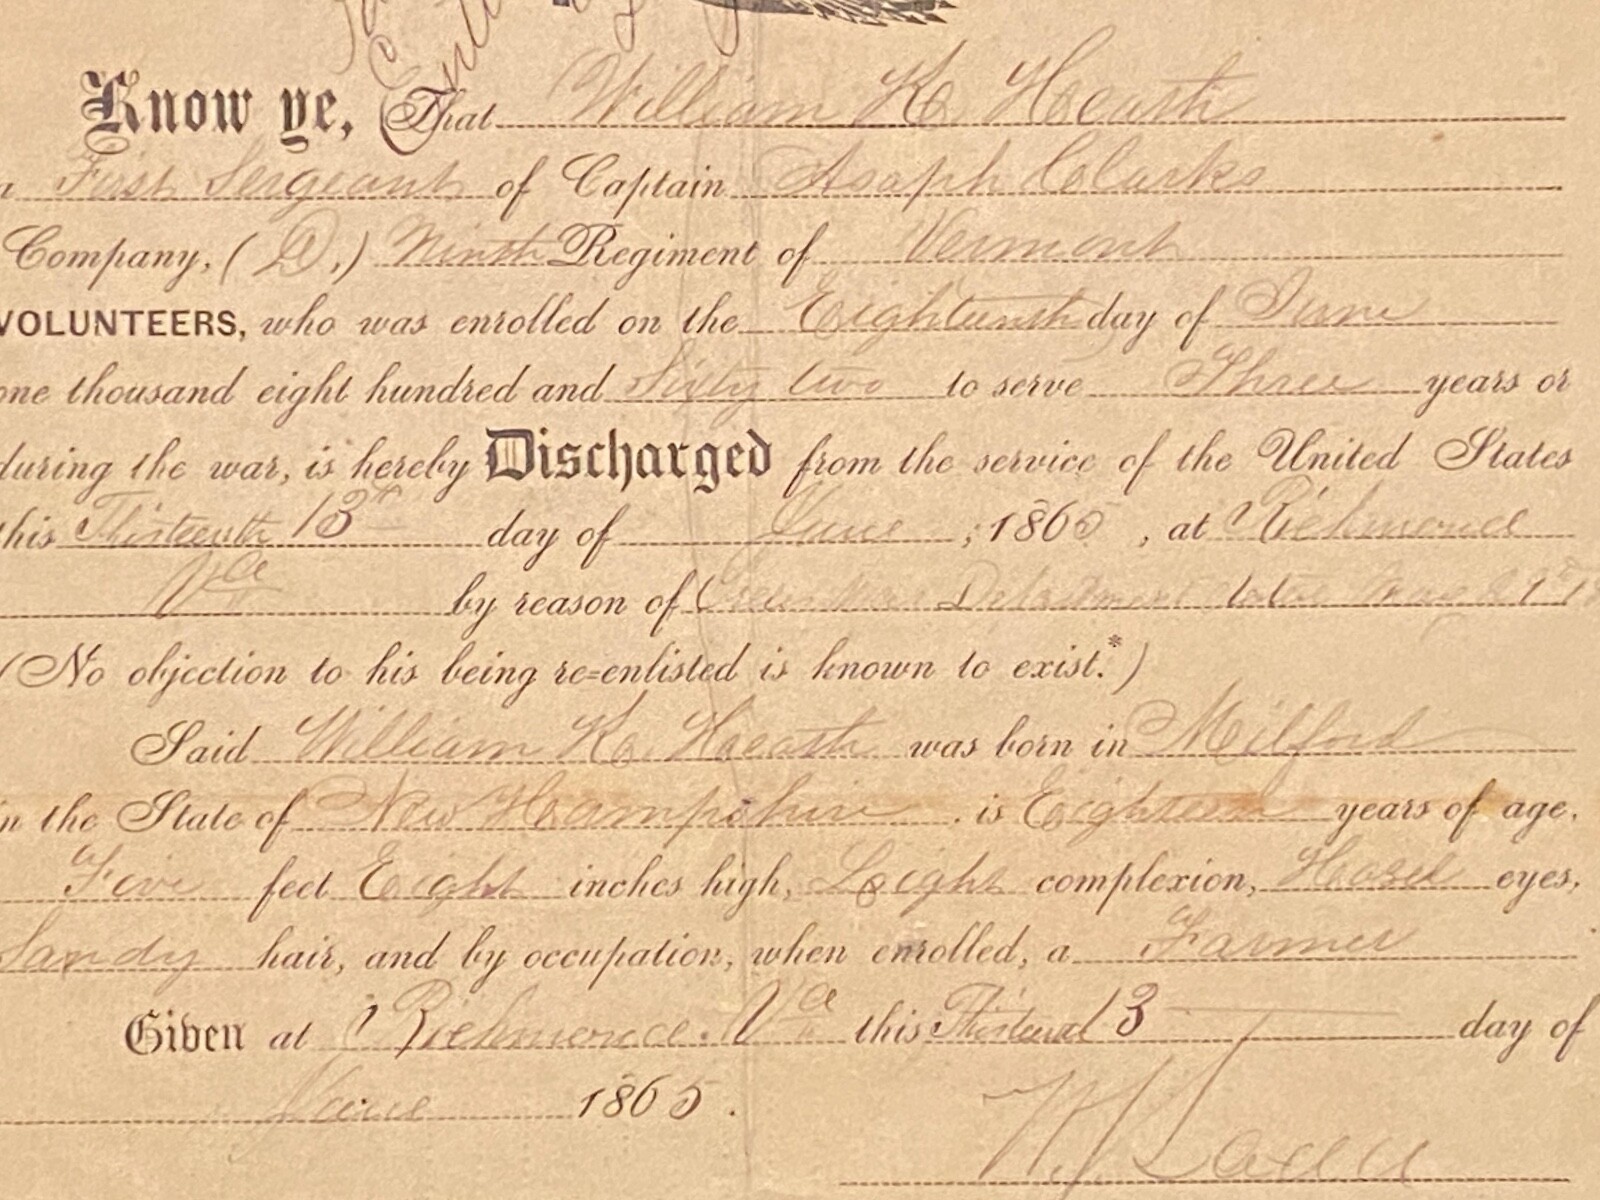 Know ye, That William K. Heath
a First Sergeant of Captain Asaph Clarks
Company, (D.) Ninth Regiment of Vermont
VOLUNTEERS, who was enrolled on the Eighteenth day of June
one thousand eight hundred and Sixty two to serve Three years or
during the war, is hereby Discharged from the service of the United States
this Thirteenth 13th day of June, 1865, at Richmond
Va by reason of Order War Department dated May
(No objection to his being re-enlisted is known to exist.*)
Said William K. Heath was born in Milford
in the State of New Hampshire, is Eighteen years of age,
Five feet Eight inches high, Light complexion, Hazel eyes,
Sandy hair, and by occupation, when enrolled, a Farmer
Given at Richmond. Va this Thirteenth 13 day of
June 1865.